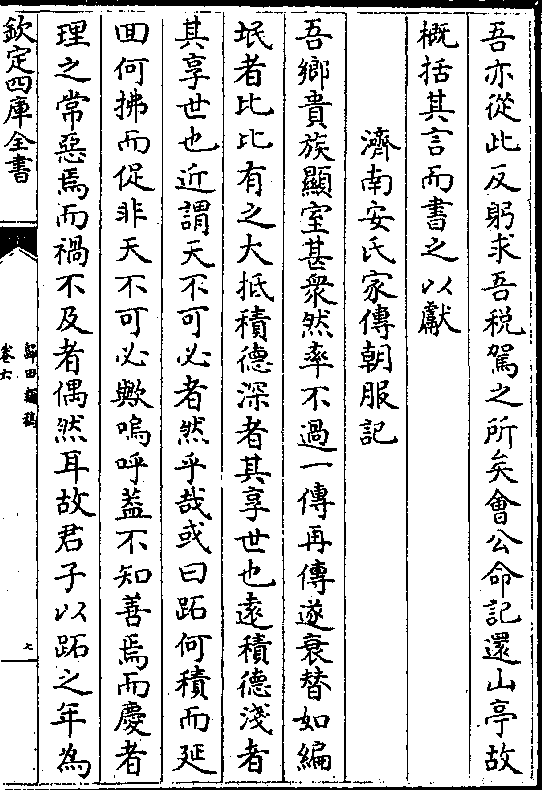 吾亦從此反躬求吾稅駕之所矣會公命記還山亭故
概括其言而書之以獻
濟南安氏家傳朝服記
吾鄉貴族顯室甚衆然率不過一傳再傳遂衰替如編
氓者比比有之大抵積德深者其享世也遠積德淺者
其享世也近謂天不可必者然乎哉或曰跖何積而延
回何拂而促非天不可必歟嗚呼葢不知善焉而慶者
理之常惡焉而禍不及者偶然耳故君子以跖之年為
欽定四庫全書
歸田類稿
卷六
七